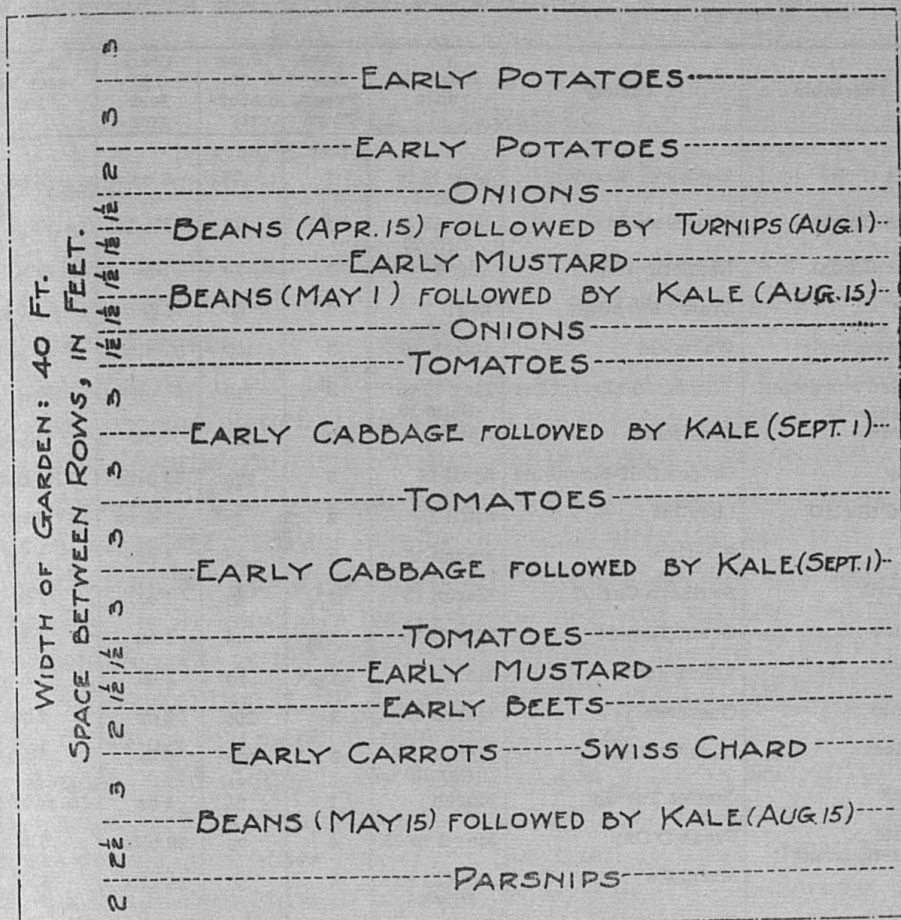 WIDTH OF GARDEN: 40 FT.
SPACE BETWEEN ROWS, IN FEET.
3
EARLY POTATOES
3
EARLY POTATOES
2
ONIONS
1½
BEANS (APR. 15) FOLLOWED BY TURNIPS (AUG. 1)
1½
EARLY MUSTARD
1½
BEANS (MAY 1) FOLLOWED BY KALE (AUG. 15)
1½
ONIONS
1½
TOMATOES
3
EARLY CABBAGE FOLLOWED BY KALE (SEPT. 1)
3
TOMATOES
3
EARLY CABBAGE FOLLOWED BY KALE (SEPT. 1)
3
TOMATOES
1½
EARLY MUSTARD
1½
EARLY BEETS
2
EARLY CARROTS SWISS CHARD
3
BEANS (MAY 15) FOLLOWED BY KALE (AUG. 15)
2½
PARSNIPS
2